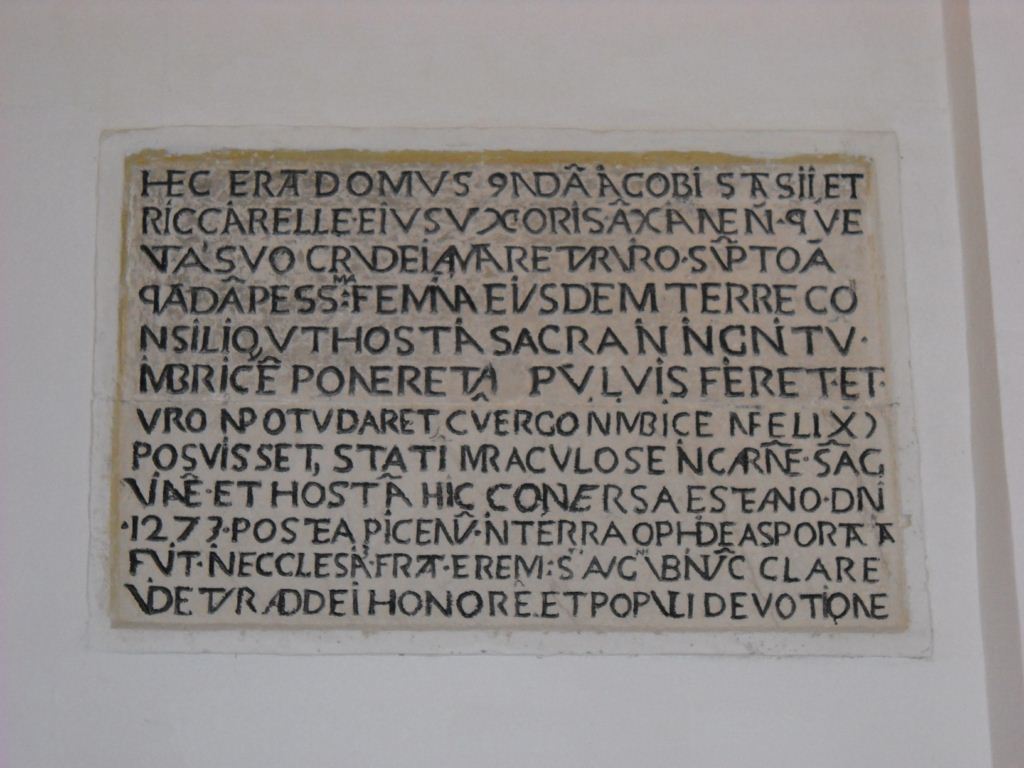 HEC ERAT DOMVS 9NDĀ IACOBI STASII ET
RICCARELLE·EIVS VXORIS ĀXANEÑ·QVE
VT A SVO CRVDEI AMARETVR VIRO·SVPTO Ā
QADĀ PESSMA: FEMINA EIVSDEM TERRE CO
NSILIO, VT HOSTIA SACRAN IN IGNITV·
IMBRICĒ PONERET A PVLVIS FIERET·ET·
VIRO IN POTV DARET CV̄ ERGO IN IMBRICE INFELIX
POSVISSET, STATĪ MIRACVLOSE IN CARNĒ·SĀG,
VINĒ·ET HOSTIĀ HIC CONERSA EST ANO·DNI
·1273·POSTEA PICENV̄·IN TERRA OPHIDE ASPORTATA
FVIT·IN ECCLESIA·FRAT·EREM: S AVG VBI NVC CLARE
VIDETVR AD DEI HONORĒ·ET POPVLI DEVOTIONE